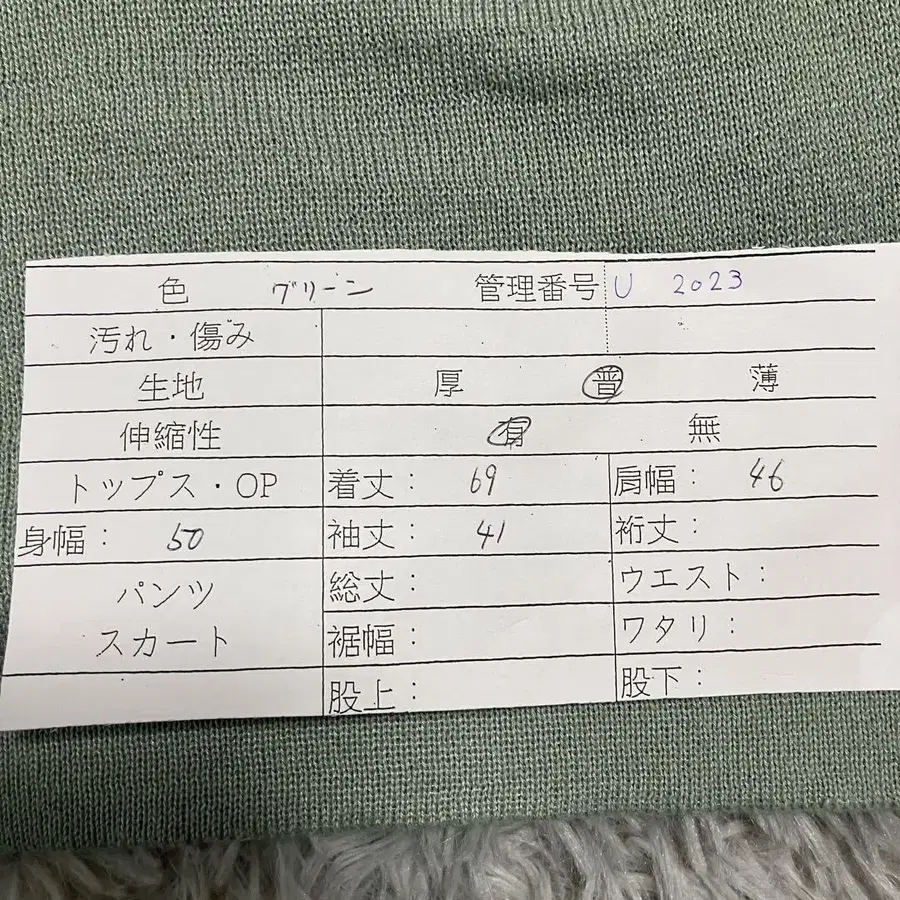 色 グリーン 管理番号 U 2023
汚れ・傷み
生地 厚 普 薄
伸縮性 有 無
トップス・OP 着丈： 69 肩幅： 46
身幅： 50 袖丈： 41 裄丈：
パンツ 総丈： ウエスト：
スカート 裾幅： ワタリ：
股上： 股下：